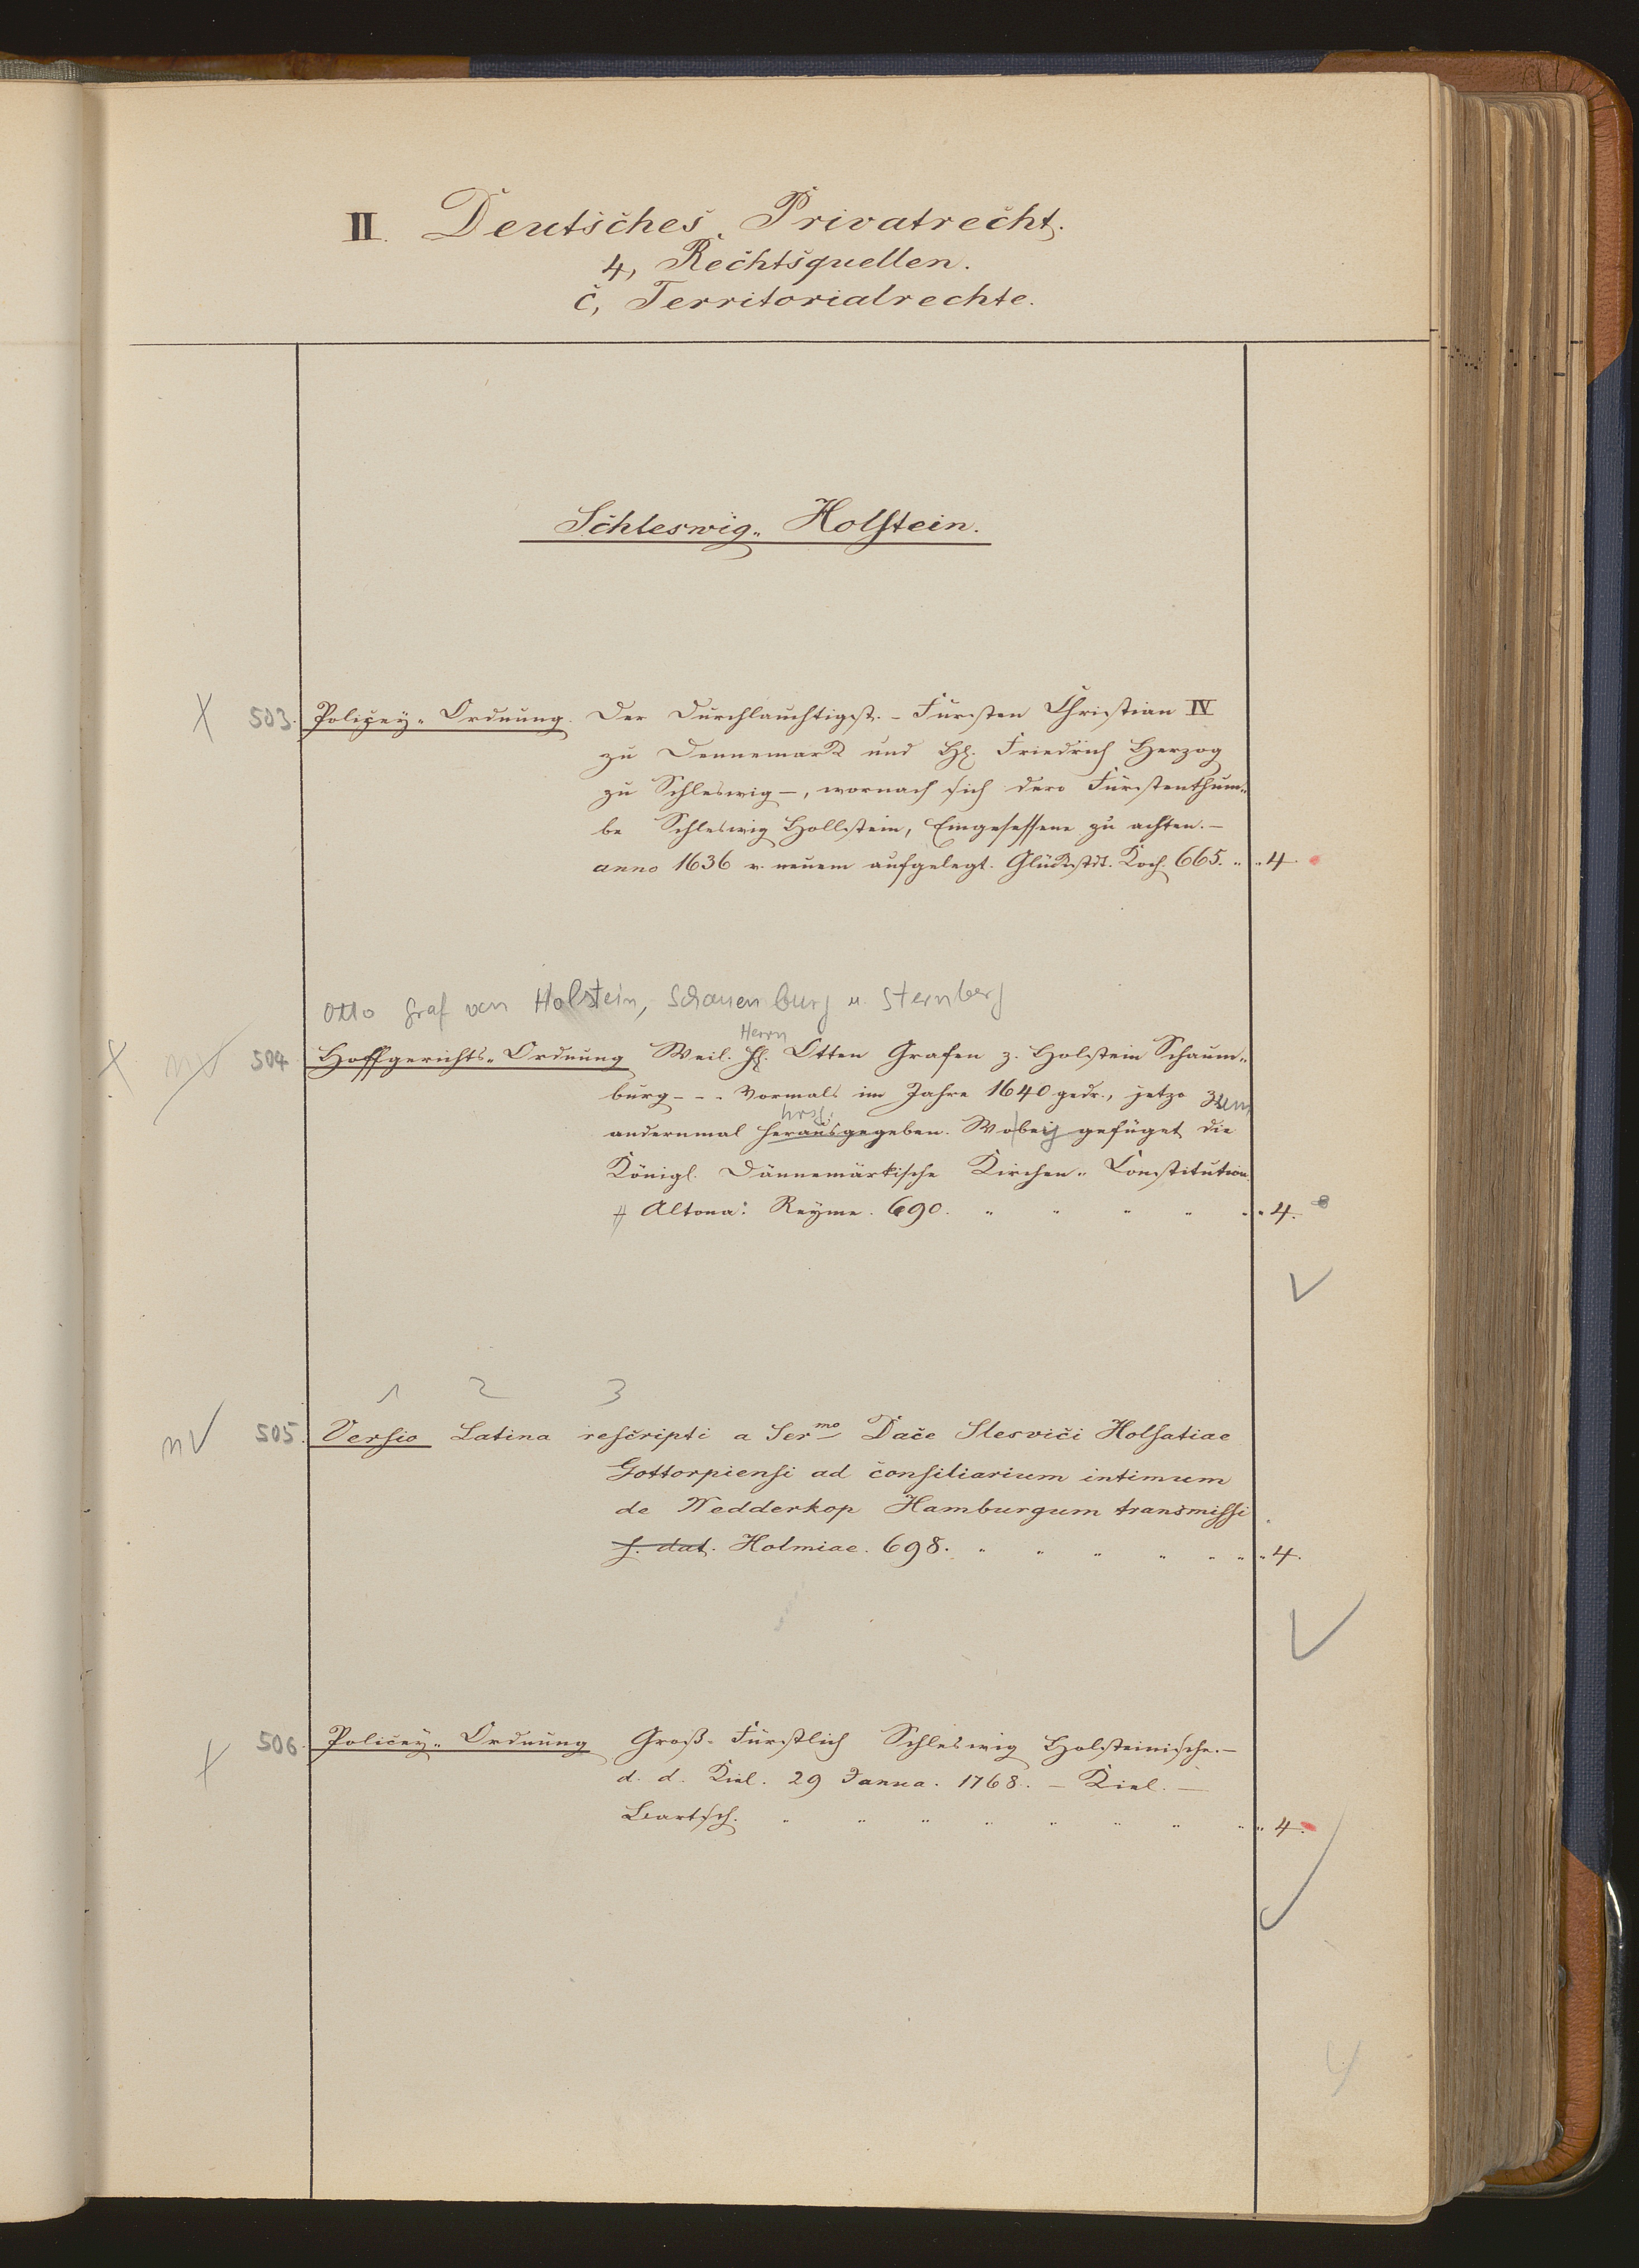 II. Deutsches Privatrecht.
4, Rechtsquellen.
c, Territorialrechte.
Schleswig-Holstein.
X 503. Polizey-Ordnung. Der Durchlauchtigst. - Fürsten Christian IV
zu Dennemark und Hh. Friedrich Herzog
zu Schleswig -, wornach sich dero Fürstenthum-
be Schleswig Hollstein, Eingesessene zu achten. -
anno 1636 v. neuem aufgelegt. Glückstdt. Koch. 665. " " 4.
Otto Graf von Holstein, Schauenburg u. Sternberg
Herrn
X nV 504 Hoffgerichts-Ordnung Weil. Hh. Otten Grafen z. Holstein Schaum-
burg - - - Vormals im Jahre 1640 gedr., jetzo zum
hrsg.
andernmal herausgegeben. Wobeij gefüget die
Königl. Dännemärkische Kirchen-Constitution.
Altona: Reyme. 690. " " " " " " 4. 8
1 2 3
nV 505. Versio Latina rescripti a Ser.mo Dace Slesvici Holsatiae
Gottorpiensi ad consiliarium intimum
de Wedderkop Hamburgum transmissi
s. dat. Holmiae. 698. " " " " " " " 4.
X 506. Policey-Ordnung Groß-Fürstlich Schleswig Holsteinische. -
d. d. Kiel. 29 Janua. 1768. - Kiel. -
Bartsch. " " " " " " " " " 4.
4